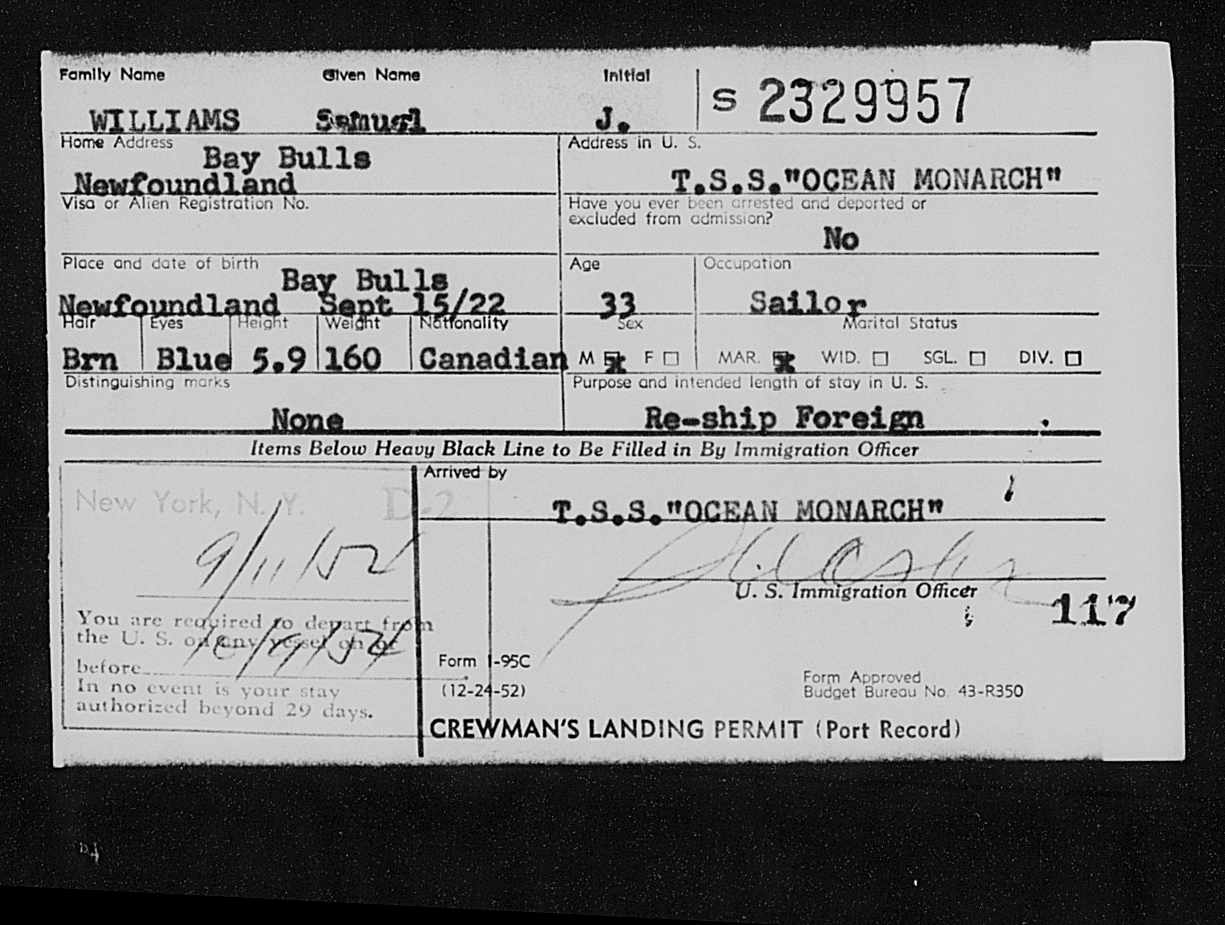 Family Name Given Name Initial
WILLIAMS Samuel J. S 2329957
Home Address
Bay Bulls
Newfoundland
Address in U. S.
T.S.S."OCEAN MONARCH"
Visa or Alien Registration No.
Have you ever been arrested and deported or
excluded from admission?
No
Place and date of birth
Bay Bulls
Newfoundland Sept 15/22
Age
33
Occupation
Sailor
Hair Eyes Height Weight Nationality
Brn Blue 5.9 160 Canadian
Sex
M F
Marital Status
MAR. WID. SGL. DIV.
Distinguishing marks
None
Purpose and intended length of stay in U. S.
Re-ship Foreign .
Items Below Heavy Black Line to Be Filled in By Immigration Officer
New York, N. Y. D-2
9/11/54
You are required to depart from
the U. S. on any vessel on or
before 10/9/54
In no event is your stay
authorized beyond 29 days.
Arrived by
T.S.S."OCEAN MONARCH"
U. S. Immigration Officer
117
Form I-95C
(12-24-52)
Form Approved
Budget Bureau No. 43-R350
CREWMAN'S LANDING PERMIT (Port Record)